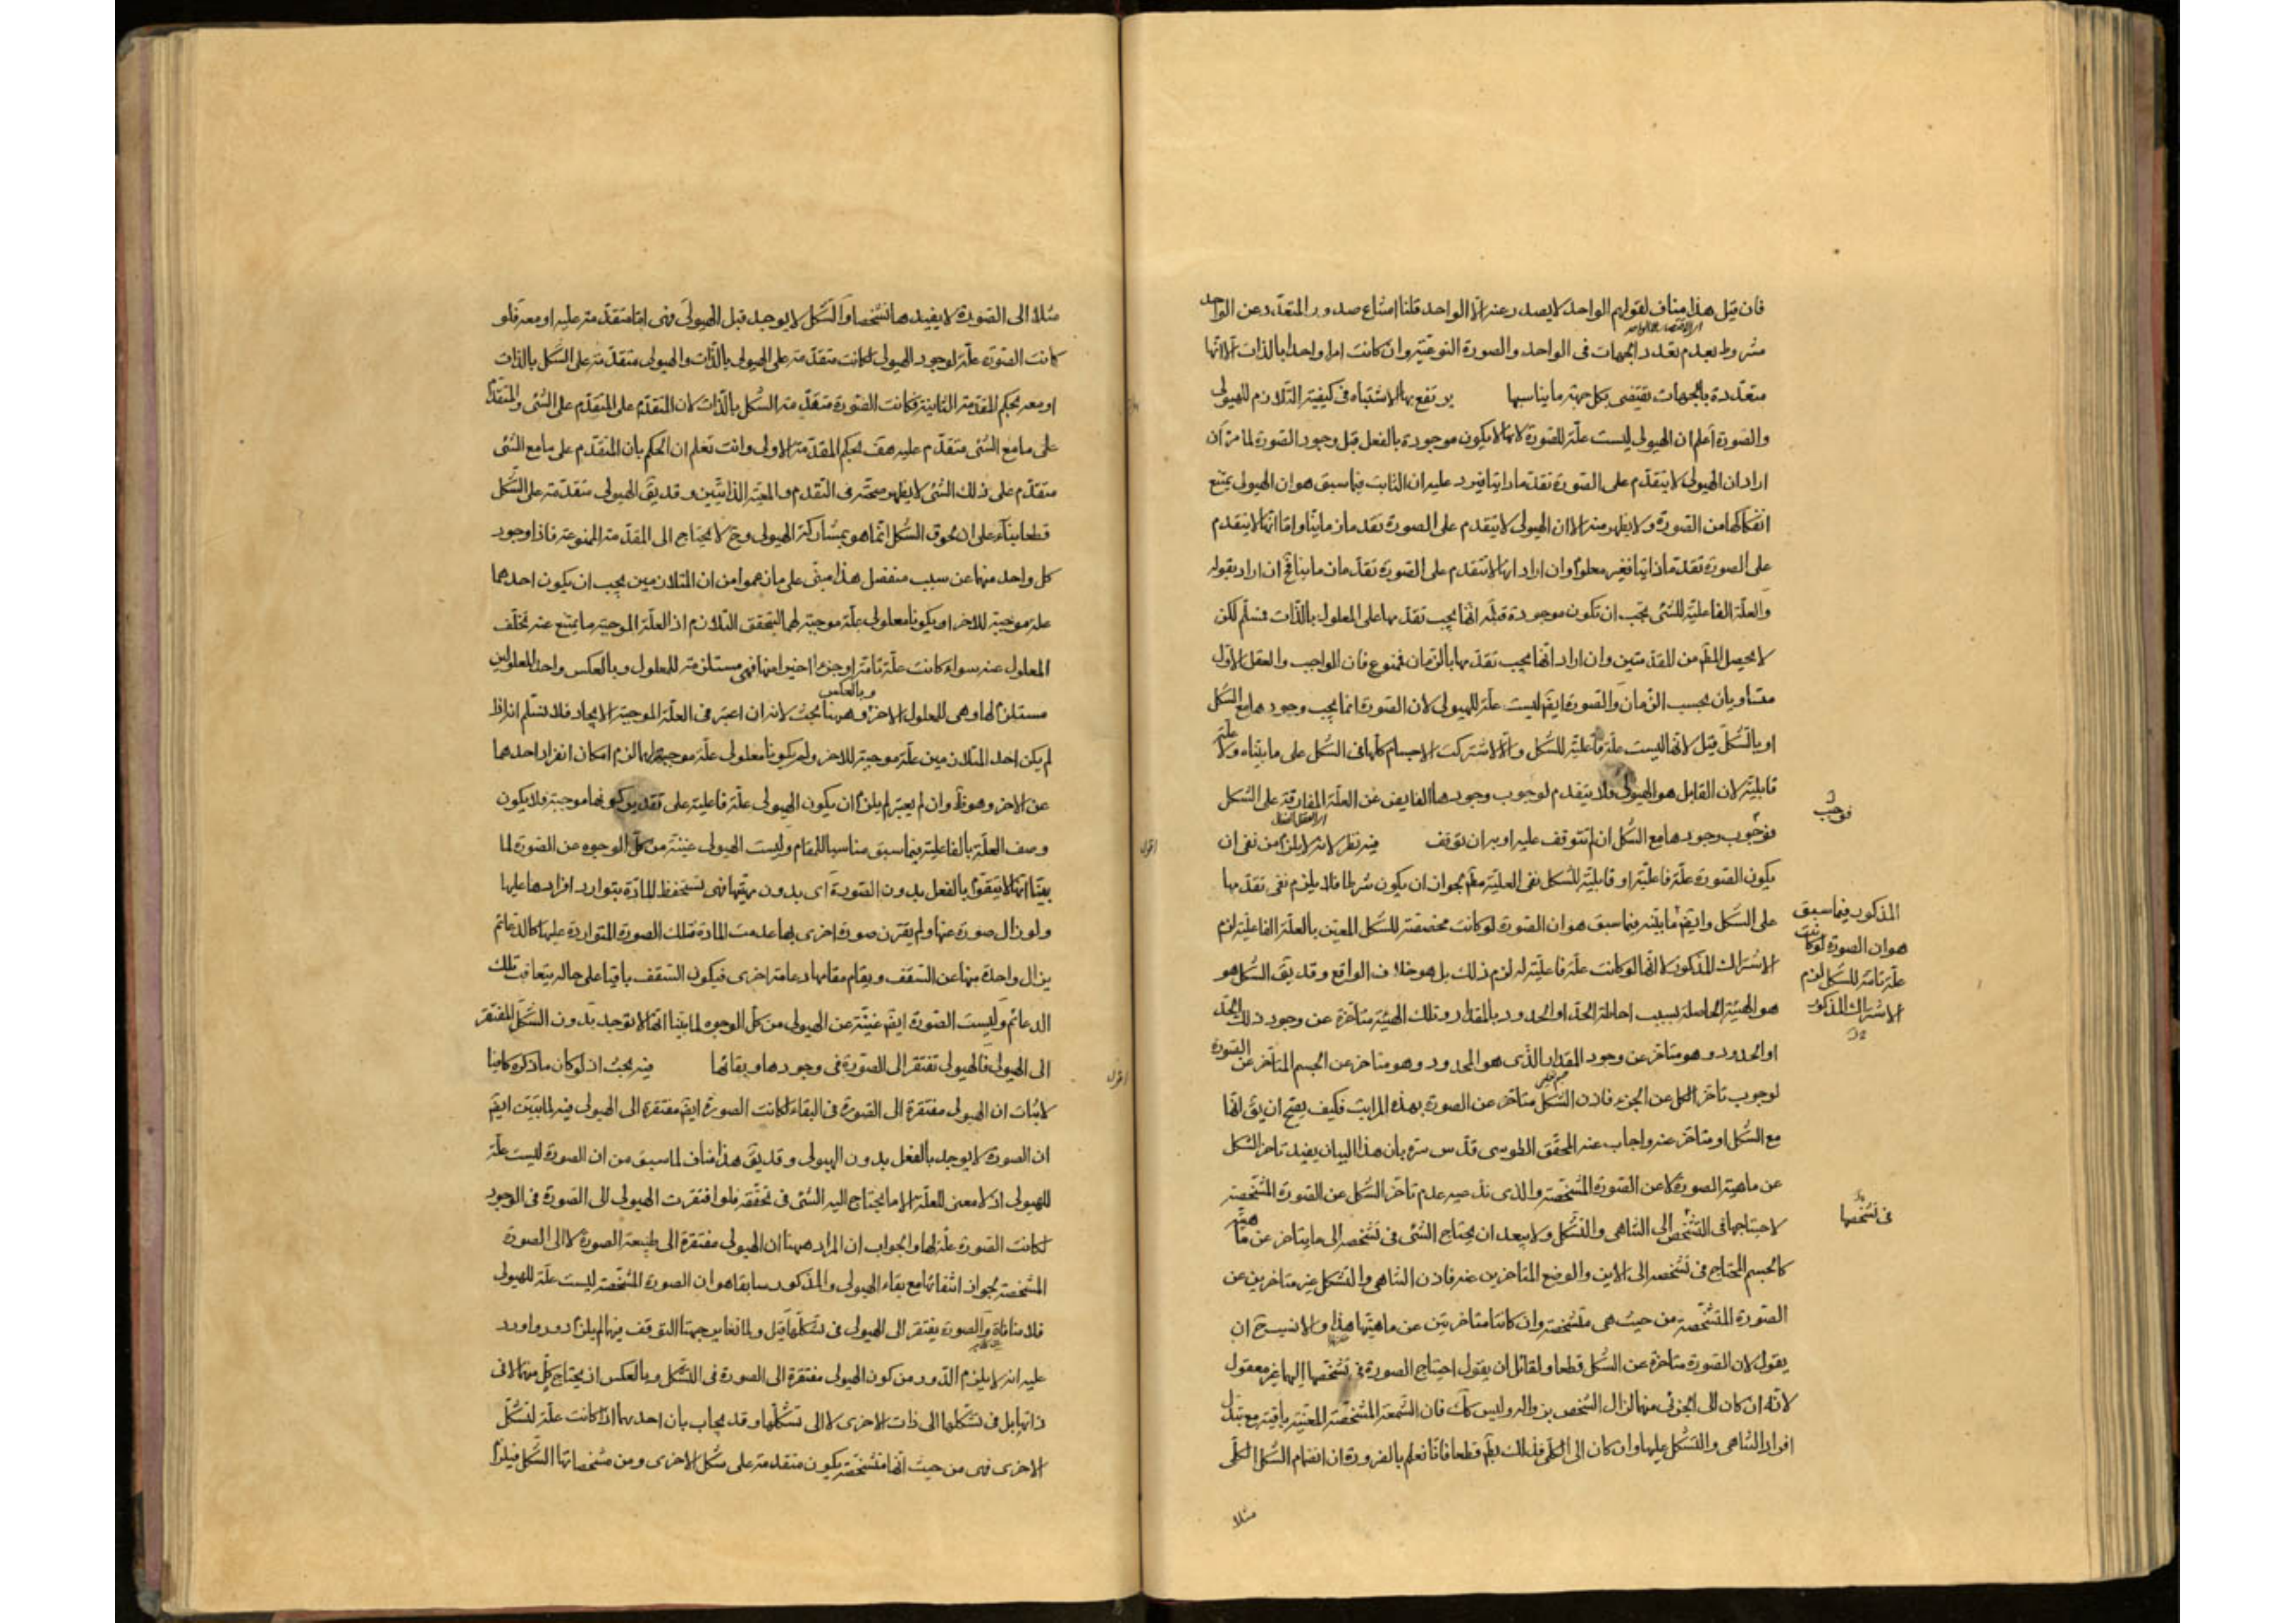 فان قيل هذا مناف لقولهم الواحد لا يصدر عنه الا الواحد قلنا امتناع صدور المتعدد عن الواحد
مشروط بعدم تعدد الجهات فى الواحد والصورة النوعية وان كانت امرا واحدا بالذات الا انها
متعددة بالجهات تقتضى بكل جهة ما يناسبها يرتفع بها الاشتباه فى كيفية التلازم للهيولى
والصورة اعلم ان الهيولى ليست علة للصورة لانها لا يكون موجودة بالفعل قبل وجود الصورة لما مر ان
اراد ان الهيولى لا يتقدم على الصورة تقدما ذاتيا فيرد عليه ان الثابت فيما سبق هو ان الهيولى يمتنع
انفكاكها من الصورة ولا يظهر منه الا ان الهيولى لا يتقدم على الصورة تقدما زمانيا واما انها لا يتقدم
على الصورة تقدما ذاتيا فغير معلوم وان اراد انها لا تتقدم على الصورة تقدما زمانيا فح ان اراد بقوله
والعلة الفاعلية للشئ يجب ان تكون موجودة قبله انها يجب تقدمها على المعلول بالذات فسلم لكن
لا يحصل المط من المقدمتين وان اراد انها يجب تقدمها بالزمان فممنوع فان الواجب والعقل الاول
متساويان بحسب الزمان والصورة ايضا ليست علة للهيولى لان الصورة انما يجب وجودها مع الشكل
او بالشكل قيل لانها ليست علة فاعلية للشكل والا لاشتركت الاجسام كلها فى الشكل على ما بيناه ولا علة
قابلية لان القابل هو الهيولى فلا يتقدم لوجوب وجودها الفايض عن العلة المفارقة على الشكل
فوجب
فوجوب وجودها مع الشكل ان لم تتوقف عليه او به ان توقف فيه نظر لانه لا يلزم من نفى ان
اقول
يكون الصورة علة فاعلية او قابلية للشكل نفى العلية مطم لجواز ان يكون شرطا فلا يلزم نفى تقدمها
على الشكل وايضا ما بينه فيما سبق هو ان الصورة لو كانت مخصصة للشكل المعين بالعلة الفاعلية لزم
المذكور فيما سبق
هو ان الصورة لو كانت
علة تامة للشكل لزم
الاشتراك المذكور
الاشتراك المذكور لا انها لو كانت علة فاعلية له لزم ذلك بل هو خلاف الواقع وقد يق الشكل هو
هو الهيئة الحاصلة بسبب احاطة الحد او الحدود بالمقدار وتلك الهيئة متاخرة عن وجود ذلك الحد
او الحدود وهو متاخر عن وجود المقدار الذى هو المحدود وهو متاخر عن الجسم المتاخر عن الصورة
لوجوب تاخر الكل عن الجزء فاذن الشكل متاخر عن الصورة بهذه المراتب فكيف يصح ان يق انها
مع الشكل او متاخر عنه واجاب عنه المحقق الطوسى قدس سره بان هذا البيان يفيد تاخر الشكل
عن ماهية الصورة لا عن الصورة المشخصة والذى ندعيه عدم تاخر الشكل عن الصورة المشخصة
فى تشخصها
لاحتياجها فى التشخص الى التناهى والتشكل ولا يبعد ان يحتاج الشئ فى تشخصه الى ما يتاخر عن ماهيته
كالجسم المحتاج فى تشخصه الى الاين والوضع المتاخرين عنه فاذن التناهى والتشكل غير متاخرين عن
الصورة المتشخصة من حيث هى متشخصة وان كانتا متاخرتين عن ماهيتها هذا والانسب ان
يقول لان الصورة متاخرة عن الشكل قطعا ولقائل ان يقول احتياج الصورة فى تشخصها اليهما غير معقول
لانه ان كان الى الجزئى منهما لزال الشخص بزواله وليس كك فان الشمعة المشخصة المعينة باقية مع تبدل
افراد التناهى والتشكل عليها وان كان الى الكلى فذلك بط قطعا فانا نعلم بالضرورة ان انضمام الشكل الكلى
مثلا
مثلا الى الصورة لا يفيدها تشخصا والشكل لا يوجد قبل الهيولى فهى اما متقدمة عليه او معه فلو
كانت الصورة علة لوجود الهيولى لكانت متقدمة على الهيولى بالذات والهيولى متقدمة على الشكل بالذات
او معه بحكم المقدمة الثانية فكانت الصورة متقدمة الشكل بالذات لان المتقدم على المتقدم على الشئ والمتقدم
على ما مع الشئ متقدم عليه هف بحكم المقدمة الاولى وانت تعلم ان الحكم بان المتقدم على ما مع الشئ
متقدم على ذلك الشئ لا يظهر صحته فى التقدم والمعية الذاتيين وقد يق الهيولى متقدمة على الشكل
قطعا بناء على ان لحوق الشكل انما هو بمشاركة الهيولى وح لا يحتاج الى المقدمة الممنوعة فاذا وجود
كل واحد منهما عن سبب منفصل هذا مبنى على ما زعموا من ان المتلازمين يجب ان يكون احدهما
علة موجبة للاخر او يكونا معلولى علة موجبة لهما ليتحقق التلازم اذ العلة الموجبة ما يمتنع عنه تخلف
المعلول عنه سواء كانت علة تامة او جزءا اخيرا منها فهى مستلزمة للمعلول وبالعكس واحد المعلولين
مستلزم لها وهى للمعلول الاخر وبالعكس وههنا بحث لانه ان اعتبر فى العلة الموجبة الايجاد فلا نسلم انه اذا
لم يكن احد المتلازمين علة موجبة للاخر ولم يكونا معلولى علة موجبة لهما لزم امكان انفراد احدهما
عن الاخر وهو ظ وان لم يعتبر لم يلزم ان يكون الهيولى علة فاعلية على تقدير كونها موجبة فلا يكون
وصف العلة بالفاعلية فيما سبق مناسبا للمقام وليست الهيولى غنية من كل الوجوه عن الصورة لما
بينا انها لا يتقوم بالفعل بدون الصورة اى بدون مهيتها فهى تستحفظ المادة بتوارد افرادها عليها
ولو زال صورة عنها ولم يقترن صورة اخرى بها عدمت المادة فتلك الصورة المتواردة عليها كالدعائم
يزال واحدة منها عن السقف ويقام مقامها دعامة اخرى فيكون السقف باقيا على حاله بتعاقب تلك
الدعائم وليست الصورة ايضا غنية عن الهيولى من كل الوجوه لما بينا انها لا توجد بدون الشكل المفتقر
الى الهيولى فالهيولى تفتقر الى الصورة فى وجودها وبقائها فيه بحث اذ لو كان ما ذكره كافيا
اقول
لاثبات ان الهيولى مفتقرة الى الصورة فى البقاء لكانت الصورة ايضا مفتقرة الى الهيولى فيه لما بينت ايضا
ان الصورة لا يوجد بالفعل بدون الهيولى وقد يق هذا مناف لما سبق من ان الصورة ليست علة
للهيولى اذ لا معنى للعلة الا ما يحتاج اليه الشئ فى تحققه فلو افتقرت الهيولى الى الصورة فى الوجود
لكانت الصورة علة لها والجواب ان المراد ههنا ان الهيولى مفتقرة الى طبيعة الصورة لا الى الصورة
المشخصة لجواز انتفائها مع بقاء الهيولى والمذكور سابقا هو ان الصورة المشخصة ليست علة للهيولى
فلا منافاة والصورة يفتقر الى الهيولى فى تشكلها قيل ولما تغاير جهتا التوقف فيهما لم يلزم دور واورد
عليه انه لا يلزم الدور من كون الهيولى مفتقرة الى الصورة فى التشكل وبالعكس اذ يحتاج كل منهما لا فى
ذاتها بل فى تشكلها الى ذات الاخرى لا الى تشكلها وقد يجاب بان احدهما اذا كانت علة لتشكل
الاخرى فهى من حيث انها متشخصة يكون متقدمة على شكل الاخرى ومن مشخصاتها الشكل فيلزم